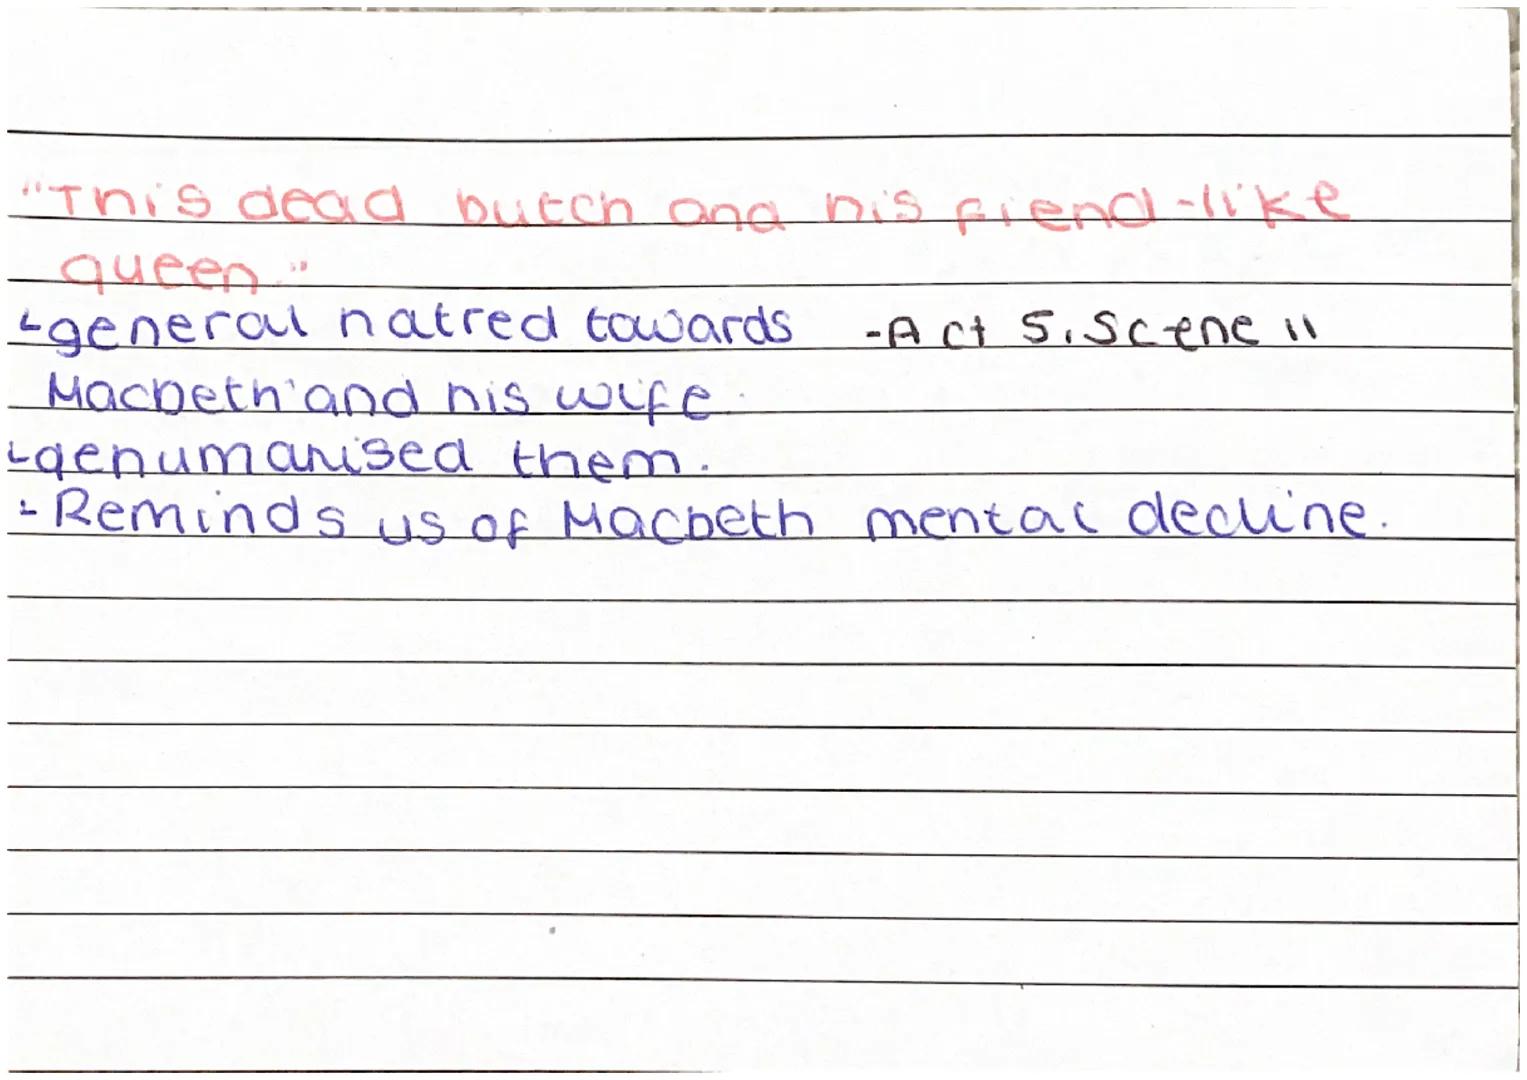 "This dead butch and his fiend-like
queen."
general hatred towards -Act 5, Scene 11
Macbeth and his wife.
dehumanised them.
Reminds us of Macbeth mental decline.